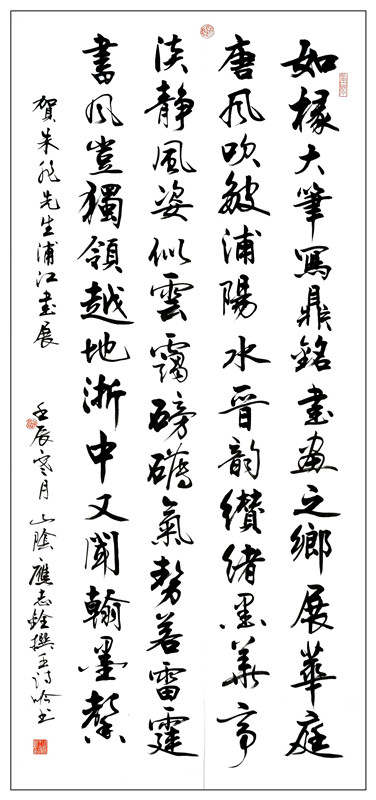 如椽大筆寫鼎銘書畫之鄉展華庭
唐風吹皺浦陽水晉韻纘緒墨華亭
淡靜風姿似雲靄磅礴氣勢若雷霆
書風豈獨領越地浙中又聞翰墨馨
賀朱先生浦江書展
壬辰寒月山陰應志銓撰王詩吟書